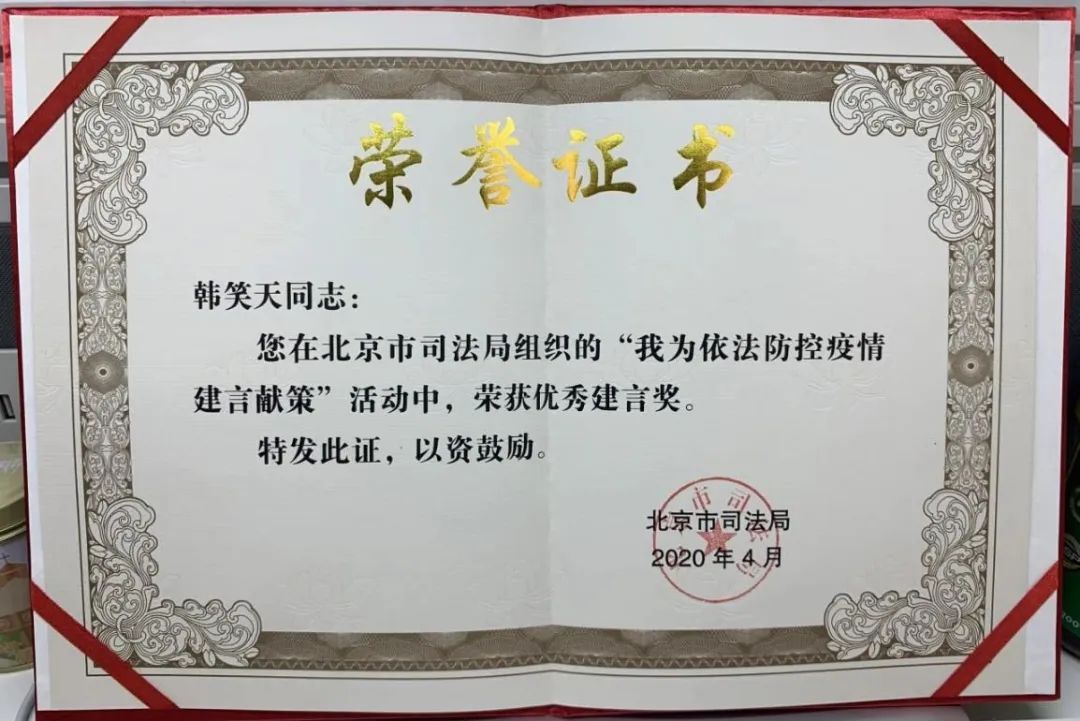 荣誉证书
韩笑天同志：
您在北京市司法局组织的“我为依法防控疫情
建言献策”活动中，荣获优秀建言奖。
特发此证，以资鼓励。
北京市司法局
2020年4月